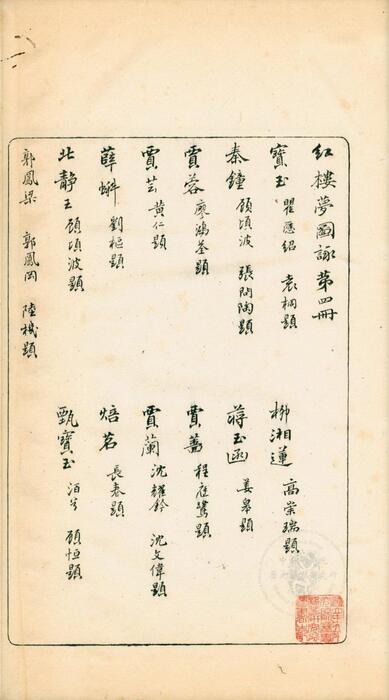 紅樓夢圖詠第四冊
寶玉 瞿應紹 袁桐題
柳湘蓮 高崇瑞題
秦鐘 顧頃波 張問陶題
蔣玉函 姜皋題
賈蓉 廖鴻荃題
賈薔 程庭鷺題
賈芸 黃仁題
賈蘭 沈耀鈴 沈文偉題
薛蝌 劉樞題
焙茗 長春題
北靜王 顧頃波題
甄寶玉 顧恒題
郭鳳梁 郭鳳岡 陸機題